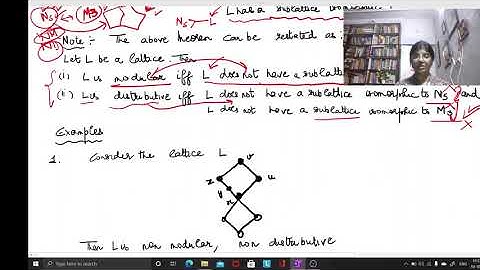 L has a sublattice
N5 M3 N5 → L
NM
ND Note :- The above theorem can be restated as :
Let L be a lattice. Then
(i) L is modular iff L does not have a sublattice
(ii) L is distributive iff L does not have a sublattice isomorphic to N5 and
L does not have a sublattice isomorphic to M3
Examples
1. Consider the lattice L
v
z u
y
x
Then L is non modular, non distributive